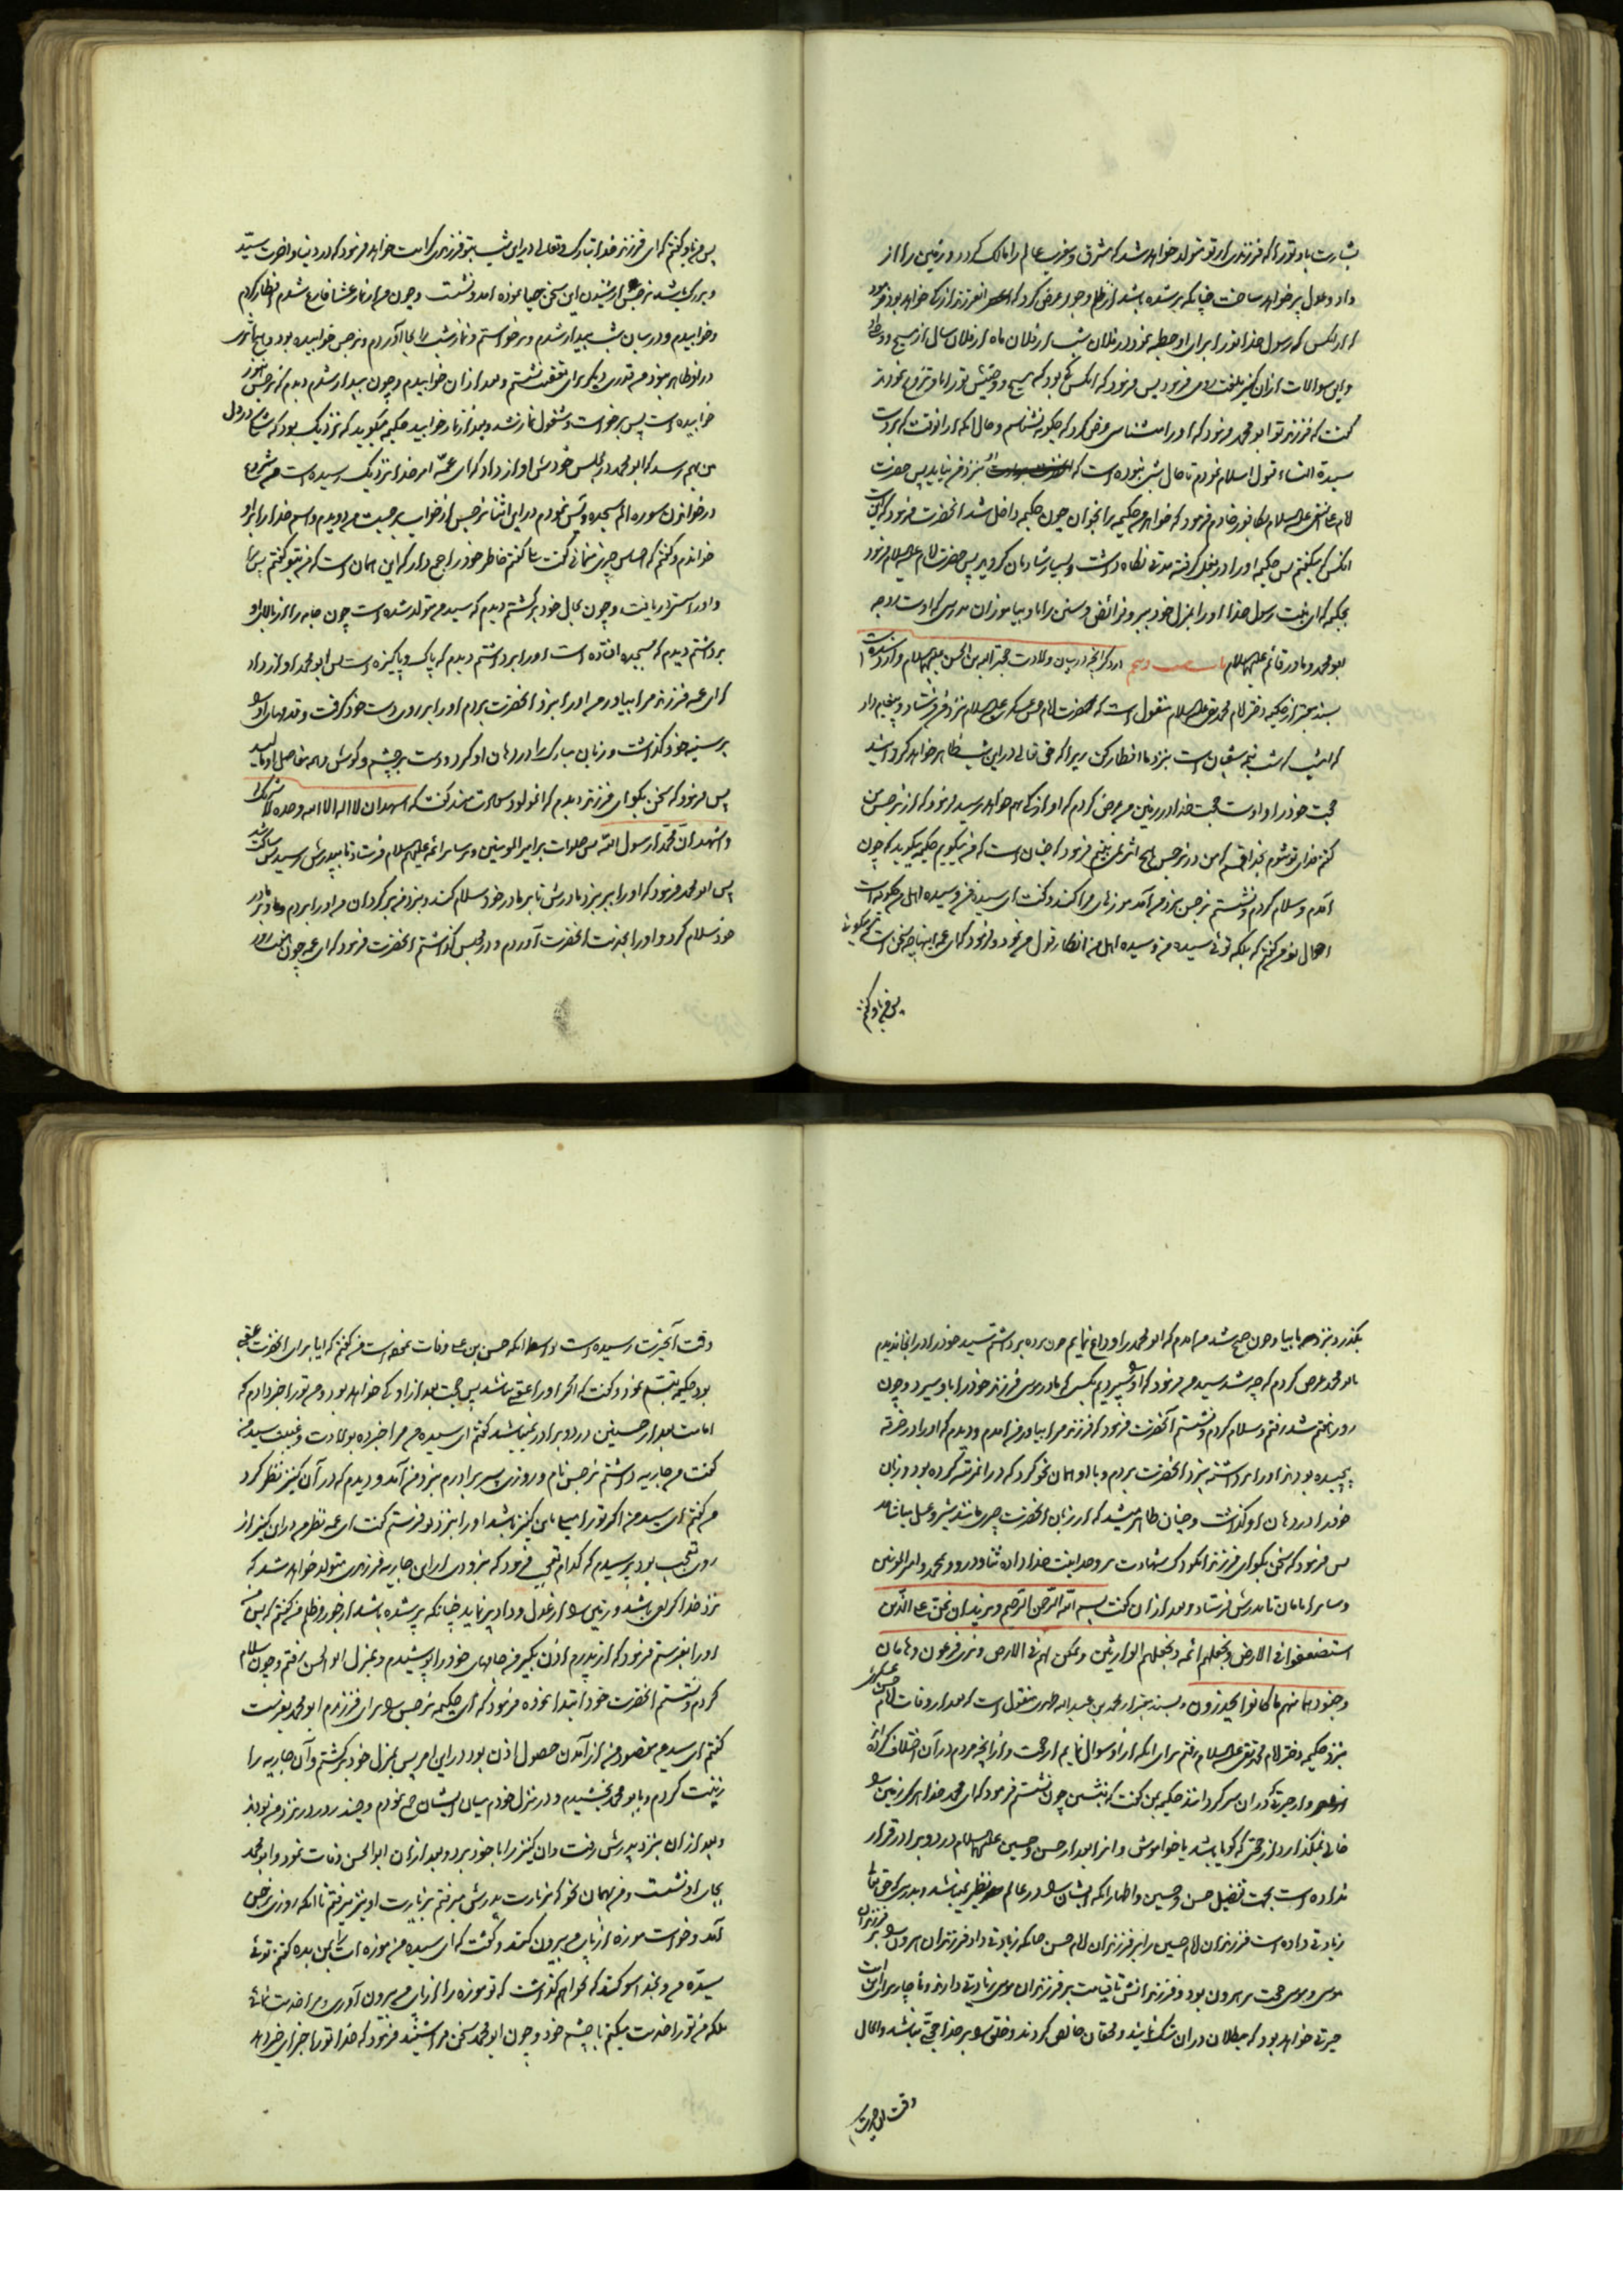 بشارت باد تو را که فرزندی از تو متولد خواهد شد که مشرق و مغرب عالم را مالک گردد و زمین را از
داد و عدل پر خواهد ساخت چنانکه پر شده باشد از ظلم و جور عرض کرد که فرزند از که خواهد بود فرمود
از آنکس که رسول خدا تو را برای او خطبه نمود در فلان شب از فلان ماه از فلان سال از مسیح و وصی او
و این سوالات از آن کنیز بلغت رومی فرمود پس فرمود که آنکس که بود که مسیح و وصیش تو را با و تزویج نمودند
گفت که فرزند تو ابو محمد فرمود که او را میشناسی عرض کرد که چگونه نشناسم و حال آنکه از آنوقت که بر دست
سیدة النساء قبول اسلام نمودم تا حال شبی نبوده است که بنزد من نیاید پس حضرت
امام علی النقی علیه السلام بکافور خادم فرمود که خواهرم حکیمه را بخوان چون حکیمه داخل شد آنحضرت فرمود که این است
آنکس که میگفتم پس حکیمه او را در بغل گرفته مدتی نگاه داشت و بسیار شادمان گردید پس حضرت امام علیه السلام فرمود
بحکیمه که ای بنت رسول خدا او را بمنزل خود ببر و فرائض و سنن را باو بیاموزان بدرستی که اوست زوجه
ابو محمد و مادر قائم علیهما السلام در ذکر آنچه در بیان ولادت حجة الله بن الحسن علیهما السلام وارد شده است
بسند معتبر از حکیمه دختر امام محمد تقی علیه السلام منقول است که حضرت امام حسن عسکری علیه السلام نزد من فرستاد و پیغام داد
که امشب که شب نیمه شعبان است بنزد ما افطار کن زیرا که حق تعالی در این شب ظاهر خواهد گردانید
حجت خود را و اوست حجت خدا در زمین من عرض کردم که او از که بهم خواهد رسید فرمود که از نرجس من
گفتم فدای تو شوم بخدا قسم که من در نرجس هیچ اثر نمی بینم فرمود که چنان است که من میگویم حکیمه میگوید که چون
آمدم و سلام کردم و نشستم نرجس بنزد من آمد موزهای مرا کند و گفت ای سیده من و سیده اهل من چگونه است
احوال تو من گفتم که بلکه توئی سیده من و سیده اهل من انکار قول من نمود و فرمود که ای عمه اینها چه سخن است که میگوئی
پس من باو گفتم
پس من باو گفتم که ای فرزند خدا تبارک و تعالی در این شب بتو فرزندی کرامت خواهد فرمود که در دنیا و آخرت سید
و بزرگ باشد نرجس از شنیدن این سخن حیا نموده آمد و نشست و چون من از نماز عشا فارغ شدم افطار کردم
و خوابیدم و در میان شب بیدار شدم و برخواستم و نماز شب را بجا آوردم و نرجس خوابیده بود و هیچ اثری
در او ظاهر نبود من قدری دیگر برای تعقیب نشستم و بعد از آن خوابیدم و چون بیدار شدم دیدم که نرجس هنوز
خوابیده است پس برخواست و مشغول نماز شد و بعد از نماز خوابید حکیمه میگوید که نزدیک بود که شک در دل
من بهم رسد که ابو محمد در مجلس خودش آواز داد که ای عمه امر خدا نزدیک رسیده است من شروع
در خواندن سوره الم سجده و یس نمودم در این اثنا نرجس از خواب برجست من دویدم و اسم خدا را بر او
خواندم و گفتم که احساس چیزی مینمائی گفت بلی گفتم خاطر خود را جمع دار که این همان است که من بتو گفتم پس مرا
و او را سستی دریافت و چون بحال خود برگشتم دیدم که سیدم متولد شده است چون جامه را از بالای او
برداشتم دیدم که بسجده افتاده است او را برداشتم دیدم که پاک و پاکیزه است پس ابو محمد آواز داد
که ای عمه فرزند مرا بیاور من او را بنزد آنحضرت بردم او را بر روی دست خود گرفت و قدمهای او را
بر سینه خود گذاشت و زبان مبارک را در دهان او کرد و دست بر چشم و گوش و همه مفاصل او مالید
پس فرمود که سخن بگو ای فرزند دیدم که آن مولود سعادتمند گفت که اشهد ان لا اله الا الله وحده لا شریک له
و اشهد ان محمدا رسول الله پس صلوات بر امیر المومنین و بر سایر ائمه علیهم السلام فرستاد تا بپدرش رسید پس ساکت شد
پس ابو محمد فرمود که او را ببر بنزد مادرش تا بر مادر خود سلام کند و بنزد من برگردان من او را بردم و بر مادر
خود سلام کرد و او را بخدمت آنحضرت آوردم و در مجلس گذاشتم آنحضرت فرمود که ای عمه چون هفت روز
بگذرد بنزد ما بیا و چون صبح شد من آمدم که ابو محمد را وداع نمایم چون پرده برداشتم سید خود را در آنجا ندیدم
بابو محمد عرض کردم که چه شد سید من فرمود که او را سپردیم بکسی که مادر موسی فرزند خود را باو سپرد و چون
روز هفتم شد رفتم و سلام کردم و نشستم آنحضرت فرمود که فرزند مرا بیاور من آمدم و دیدم که او را در خرقه
پیچیده بودند او را برداشته بنزد آنحضرت بردم و با او همان نحو کرد که در آنمرتبه کرده بود و زبان
خود را در دهان او گذاشت و چنان ظاهر میشد که از زبان آنحضرت چیزی مانند شیر و عسل میاشامد
پس فرمود که سخن بگو ای فرزند آن کودک شهادت بر وحدانیت خدا داده ثنا و درود بر محمد و امیر المومنین
و سایر امامان تا پدرش فرستاد و بعد از آن گفت بسم الله الرحمن الرحیم و نرید ان نمن علی الذین
استضعفوا فی الارض و نجعلهم ائمه و نجعلهم الوارثین و نمکن لهم فی الارض و نری فرعون و هامان
و جنودهما منهم ما کانوا یحذرون و بسند معتبر از محمد بن عبد الله طهوی منقول است که بعد از وفات امام حسن عسکری
بنزد حکیمه دختر امام محمد تقی علیه السلام رفتم برای آنکه از او سوال نمایم از حجت و از آنچه مردم در آن اختلاف کرده اند
و از حیرتی که در آن سرگردانند حکیمه بمن گفت که بنشین چون نشستم فرمود که ای محمد خدا هرگز زمین را
خالی نمیگذارد از حجتی که گویا باشد یا خواموش و آنرا بعد از حسن و حسین علیهما السلام در دو برادر قرار
نداده است بجهت تفضیل حسن و حسین و اظهار آنکه ایشان را در عالم نظیر نمیباشد و بدرستی که حق تعالی
زیادتی داده است فرزندان امام حسین را بر فرزندان امام حسن چنانکه زیادتی داد فرزندان هرون را بر فرزندان
موسی و موسی حجت بر هرون بود و فرزندانش تا قیامت بر فرزندان موسی زیادتی دارند و ناچار برای امت
حیرتی خواهد بود که مبطلان در آن شک نمایند و محقان خالص گردند و خلق را بر خدا حجتی نباشد و الحال
وقت آن حیرت
وقت آنحیرت رسیده است بواسطه آنکه حسن بن علی وفات نموده است من گفتم که ایا برای آنحضرت عقبی
بود حکیمه تبسم نمود و گفت که اگر او را عقبی نباشد پس حجت بعد از او که خواهد بود و من تو را خبر دادم که
امامت بعد از حسنین در دو برادر نمیباشد گفتم ای سیده من مرا خبر ده بولادت و غیبت سید من
گفت من جاریه داشتم نرجس نام و روزی پسر برادرم بنزد من آمد و دیدم که در آن کنیز نظر کرد
من گفتم ای سید من اگر تو را میلی باین کنیز باشد او را بنزد تو فرستم گفت ای عمه نظر من در این کنیز از
روی تعجب بود پرسیدم که کدام تعجب فرمود که بزودی از این جاریه فرزندی متولد خواهد شد که
نزد خدا گرامی باشد و زمین را از عدل و داد پر نماید چنانکه پر شده باشد از جور و ظلم من گفتم که پس
او را بفرستم فرمود که از پدرم اذن بگیر من جامهای خود را پوشیدم و بمنزل ابو الحسن رفتم و چون سلام
کردم و نشستم آنحضرت خود ابتدا نموده فرمود که ای حکیمه نرجس را برای فرزندم ابو محمد بفرست
گفتم ای سید من مقصود من از آمدن حصول اذن بود در این امر پس بمنزل خود برگشتم و آن جاریه را
زینت کردم و بابو محمد بخشیدم و در منزل خودم میان ایشان جمع نمودم و چند روز در نزد من بودند
و بعد از آن بنزد پدرش رفت و آن کنیز را با خود برد و بعد از آن ابو الحسن وفات نمود و ابو محمد
بجای او نشست و من بهمان نحو که بزیارت پدرش میرفتم بزیارت او نیز میرفتم تا آنکه روزی نرجس
آمد و خواست موزه از پای من بیرون کند و گفت که ای سیده من موزه ات را بمن بده گفتم توئی
سیده من و بخدا سوگند که نخواهم گذاشت که تو موزه را از پای من بیرون آوری و مرا خدمت نمائی
بلکه من تو را خدمت میکنم با چشم خود و چون ابو محمد سخن مرا شنید فرمود که خدا تو را جزای خیر دهد